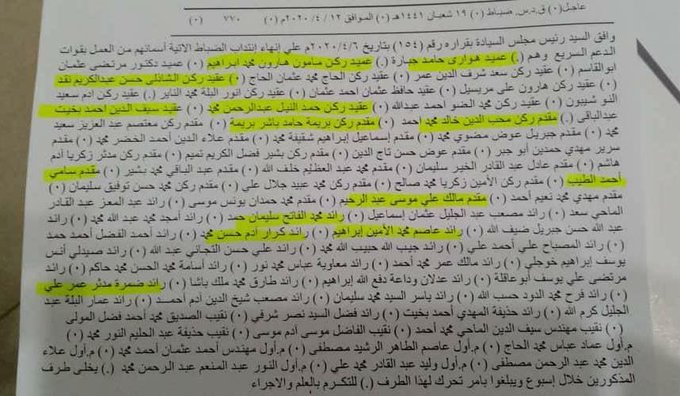 عاجل (٠) ق.د.س. ضباط (٠) ١٩ شعبان ١٤٤١هـ (٠) الموافق ١٢ / ٤ / ٢٠٢٠م (٠) ٧٧٠ (٠)
وافق السيد رئيس مجلس السيادة بقراره رقم (١٥٤) بتاريخ ٢٠٢٠/٤/٦م علي إنهاء إنتداب الضباط الاتية أسمائهم من العمل بقوات
الدعم السريع وهم (.) عميد هوارى حامد جبارة (.) عميد ركن مامون هارون محمد ابراهيم (٠) عميد دكتور مرتضى عثمان
ابوالقاسم (٠) عقيد ركن سعد شرف الدين عمر (٠) عقيد ركن الحاج محمد عثمان الحاج (٠) عقيد ركن الشاذلي حسن عبدالكريم نقد
(٠) عقيد ركن هارون علي مريسيل (٠) عقيد حافظ عثمان احمد عثمان (٠) عقيد ركن انور البلة محمد الناير (٠) عقيد ركن ادم سعيد
النو شيبون (٠) عقيد ركن محمد الضو أحمد عبدالله (٠) عقيد ركن حمد النيل عبدالرحمن محمد (٠) عقيد سيف الدين احمد بخيت
عبدالباقي (.) مقدم ركن محب الدين خالد محمد احمد (٠) مقدم ركن بريمة حامد باشر بريمة (٠) مقدم ركن معتصم عبد العزيز سعيد
محمد (٠) مقدم جبريل عوض مضوي محمد (٠) مقدم إسماعيل إبراهيم شقيفة محمد (٠) مقدم علاء الدين أحمد الخضر محمد (٠) مقدم
سرير مهدي حمدين أبو جبر (٠) مقدم عوض حسن تاج الدين (٠) مقدم ركن بشير فضل الكريم تميم (٠) مقدم ركن مدثر زكريا أدم
هاشم (٠) مقدم عادل عبد القادر الخير سليمان (٠) مقدم محمد عبد العظيم خلف الله (٠) مقدم عبد الباقي محمد بشير (٠) مقدم سامي
أحمد الطيب (٠) مقدم ركن الأمين زكريا محمد صالح (٠) مقدم ركن محمد عبيد جلال علي (٠) مقدم ركن محمد حسن توفيق سليمان (٠)
مقدم مهدي محمد نعيم أحمد (٠) مقدم مالك علي موسى عبد الرحيم (٠) مقدم محمد حمدان يونس موسى (٠) رائد عبد المعز عبد القادر
الماحي سعد (٠) رائد مصعب عبد الجليل عثمان إسماعيل (٠) رائد محمد الفاتح سليمان حمد (٠) رائد أمجد محمد عبد الله محمد (٠) رائد
عبد الله حسن جبريل ضيف الله (٠) رائد عاصم محمد الأمين إبراهيم (٠) رائد كرار أدم حسن محمد (٠) رائد أحمد الفضل أحمد حمد
(٠) رائد المصباح علي أحمد علي (٠) رائد حبيب الله حبيب الله محمد (٠) رائد علي حسن التجاني عبد الله (٠) رائد صيدلي أنس
يوسف إبراهيم خوجلي (٠) رائد مالك عمر محمد أحمد (٠) رائد معاوية عباس محمد نور (٠) رائد أسامة محمد الحسن محمد حاكم (٠) رائد
مرتضى علي يوسف أبوعاقلة (٠) رائد عدلان وداعة دفع الله إبراهيم (٠) رائد طارق محمد ملك باشا (٠) رائد ضمرة مدثر عمر علي
(٠) رائد فرح محمد الدود حسب الله (٠) رائد ياسر السيد محمد سليمان (٠) رائد مصعب شيخ الدين أدم أحمد (٠) رائد عمار البلة عبد
الجليل كرم الله (٠) رائد حذيفة المهدي أحمد بخيت (٠) رائد فضل السيد نصر شرفي (٠) نقيب الصديق محمد أحمد فضل المولى
(٠) نقيب مهندس سيف الدين الماحي محمد أحمد (٠) نقيب الفاضل موسى أدم موسى (٠) نقيب حذيفة عبد الحليم النور محمد (٠)
م.أول عماد عباس محمد الحاج (٠) م.أول عاصم الطاهر الرشيد مصطفى (٠) م.أول مهندس أحمد عثمان أحمد محمد (٠) م.أول علاء
الدين محمد عبد الرحمن مصطفى (٠) م.أول وليد عبد القادر محمد علي (٠) م.أول النور عبد المنعم عبد الرحمن محمد (.) يخلى طرف
المذكورين خلال إسبوع ويبلغوا بامر تحرك لهذا الطرف (.) للتكرم بالعلم والاجراء